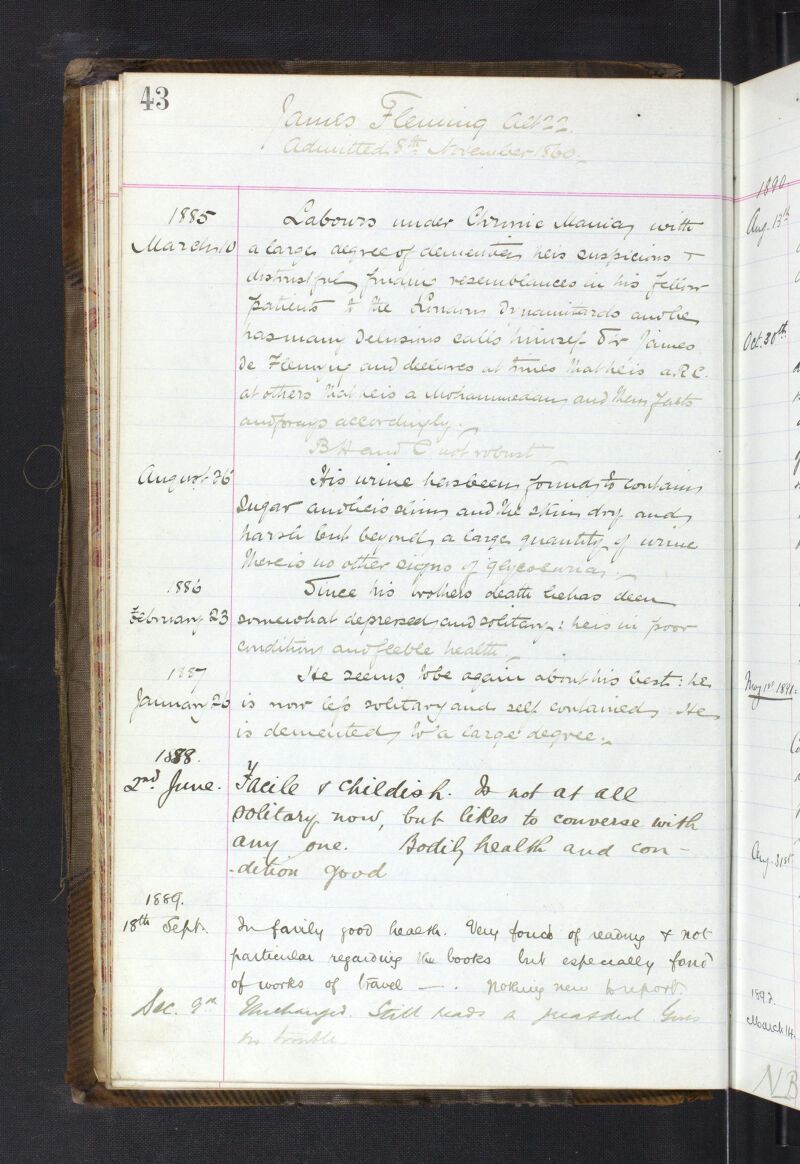 43
James Fleming aet
Admitted 8th November 1860.
1885
March 10
Labours under Chronic Mania, with
a large degree of dementia; he is suspicious &
distrustful finding resemblances in his fellow
patients to the London Dynamitards and he
has many Delusions calls himself Sir James
De Fleming and declares at times that he is a R.C.
at others that he is a Mohammedan and then fasts
and prays accordingly.
B H and C not robust
August 26
His urine has been found to contain
Sugar and he is slim and the skin dry and
harsh but beyond a large quantity of urine
there is no other signs of glycosuria.
1886
February 23
Since his brothers death he has been
somewhat depressed and solitary: he is in poor
condition and feeble health
1887
January 26
He seems to be again about his best: he
is now less solitary and self contained. He
is demented to a large degree.
1888.
2nd June.
Facile & childish. Is not at all
solitary now, but likes to converse with
any one. Bodily health and con-
-dition good
1889.
18th Sept.
In fairly good health. Very fond of reading & not
particular regarding the books but especially fond
of works of travel —. Nothing new to report
Dec. 9th
Unchanged. Still reads a Gives
no trouble
1890
Aug. 13th
Oct. 30th
May 1st 1891.
Aug. 31st
1892.
March 14.
NB